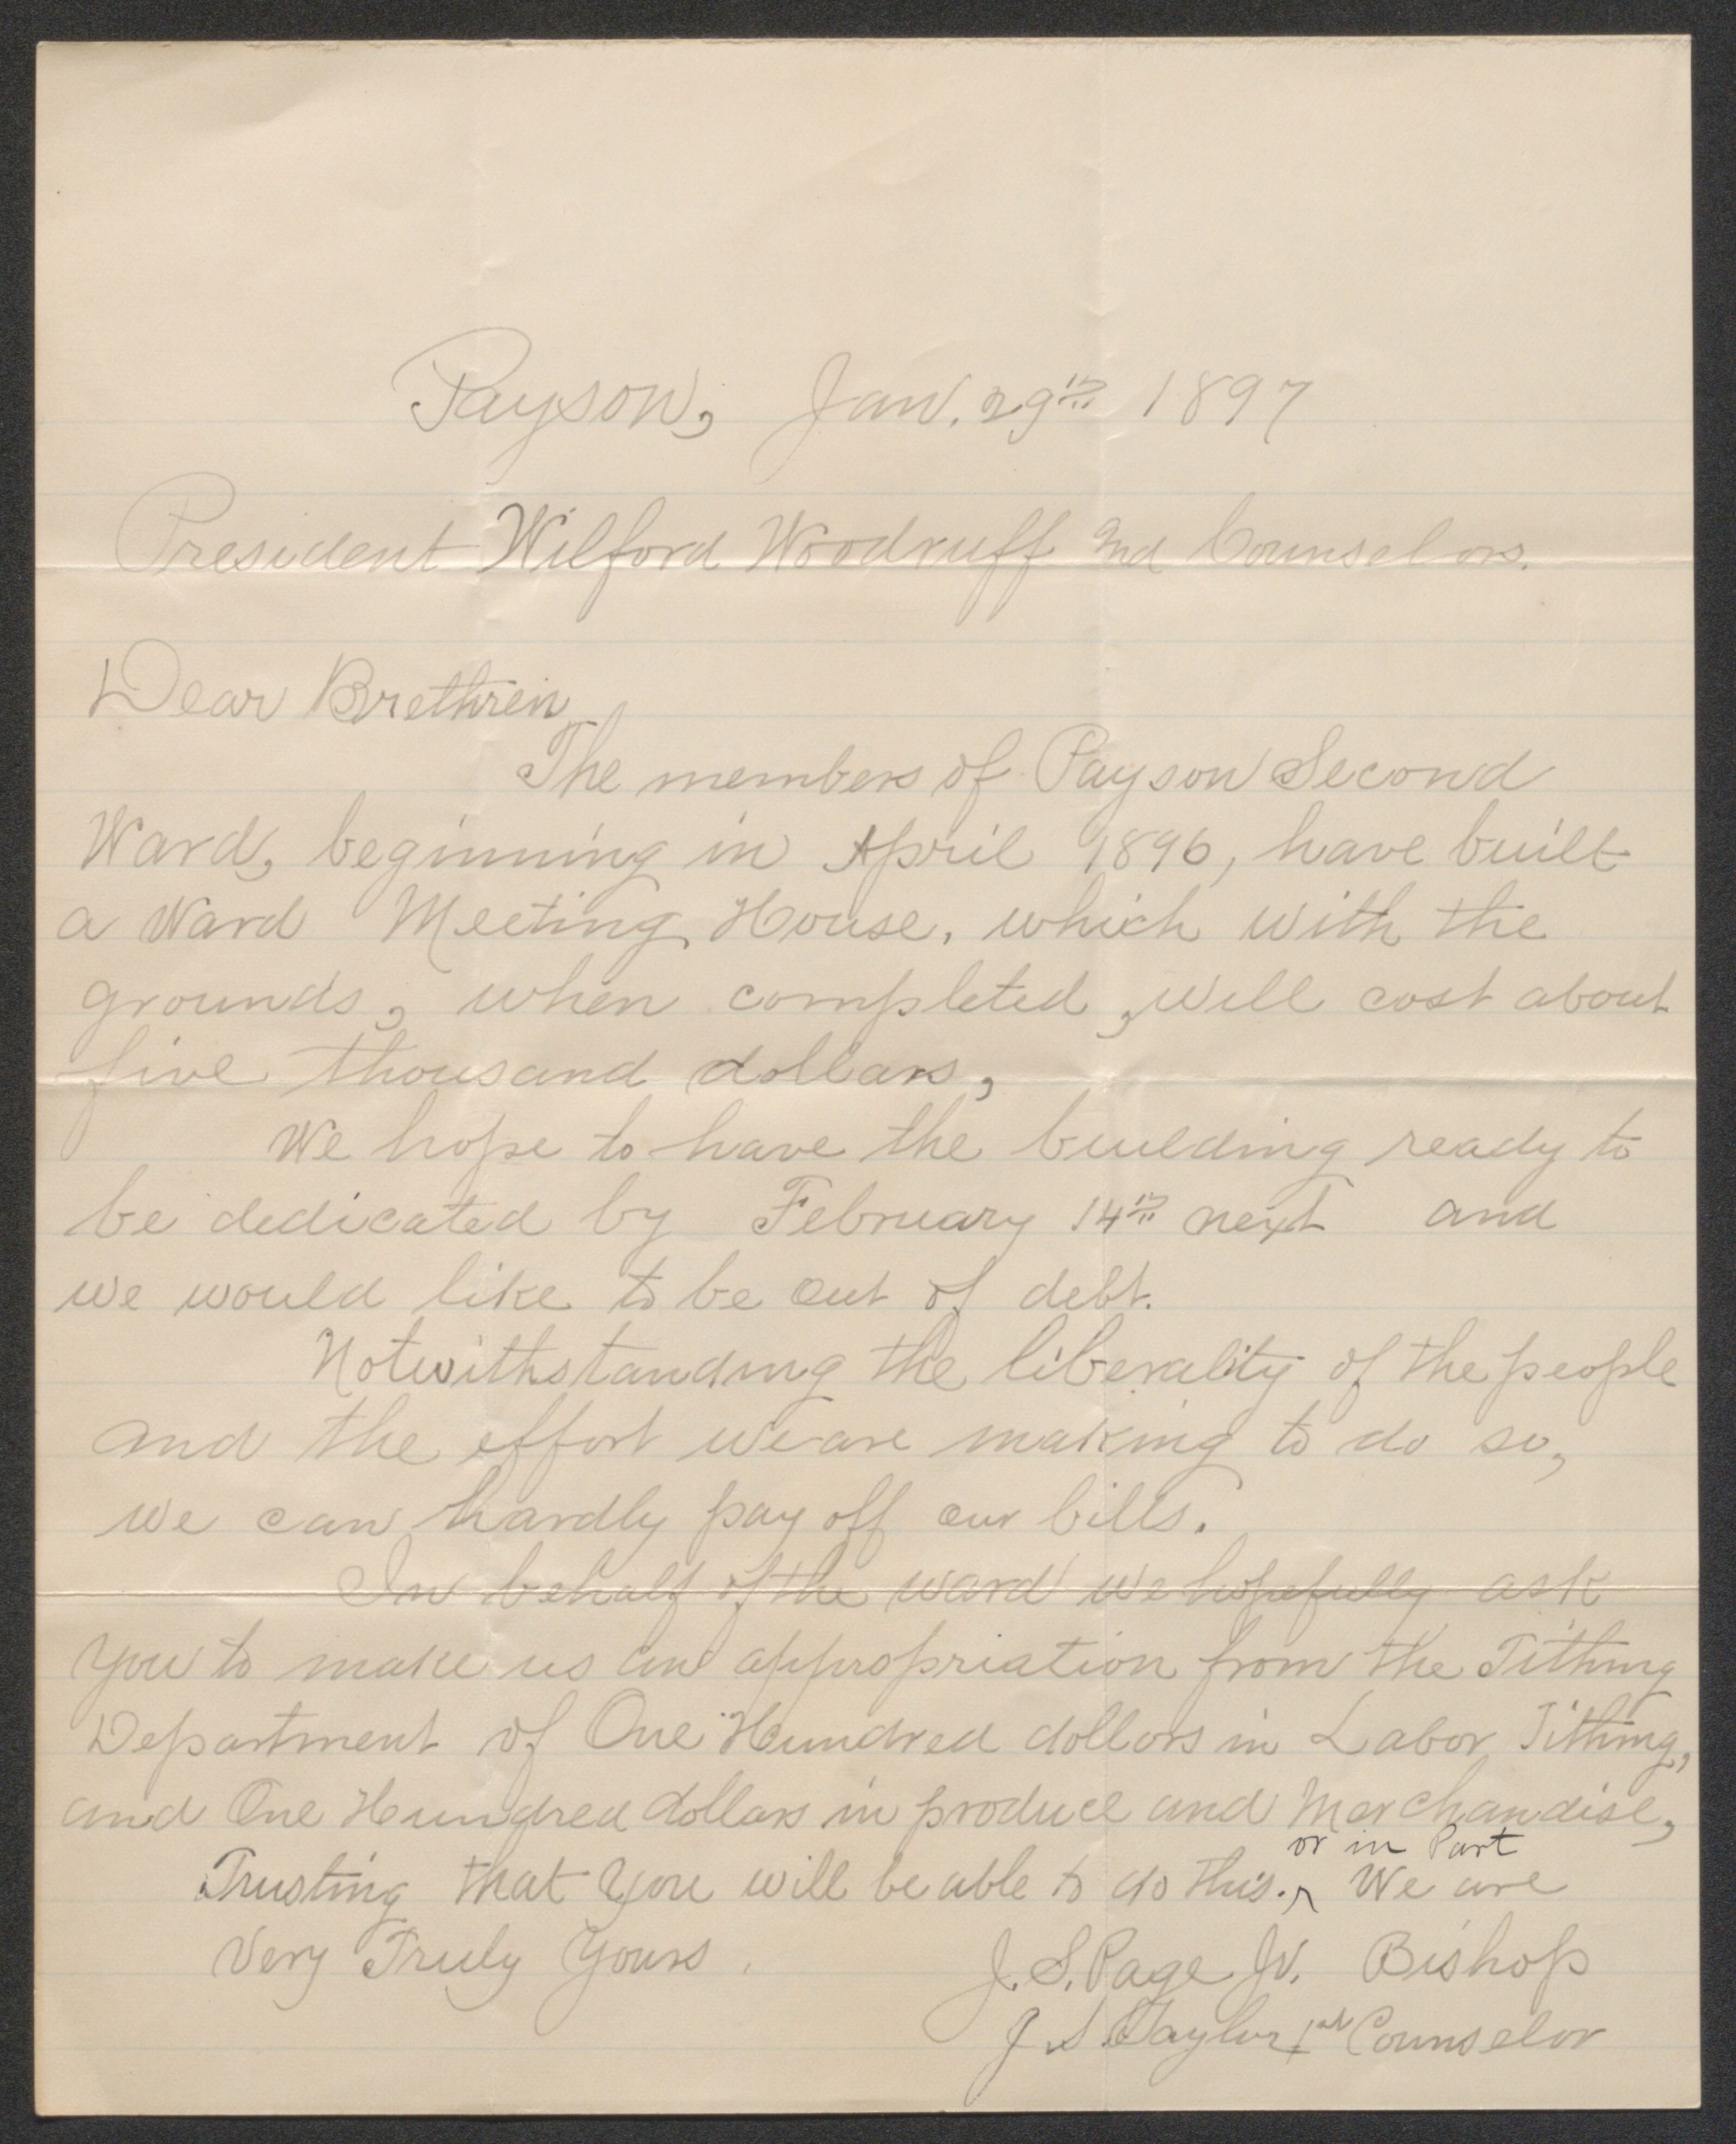 Payson, Jan. 29th 1897
President Wilford Woodruff and Counselors.
Dear Brethren
The members of Payson Second
Ward, beginning in April 1896, have built
a Ward Meeting House, which with the
grounds, when completed, will cost about
five thousand dollars,
We hope to have the building ready to
be dedicated by February 14th next and
we would like to be out of debt.
Notwithstanding the liberality of the people
and the effort we are making to do so,
we can hardly pay off our bills.
In behalf of the ward we hopefully ask
you to make us an appropriation from the Tithing
Department of One Hundred dollars in Labor Tithing,
and One Hundred dollars in produce and Merchandise,
or in Part
Trusting that you will be able to do this.^ We are
Very Truly Yours.
J. S. Page Jr. Bishop
J. S. Taylor 1st Counselor